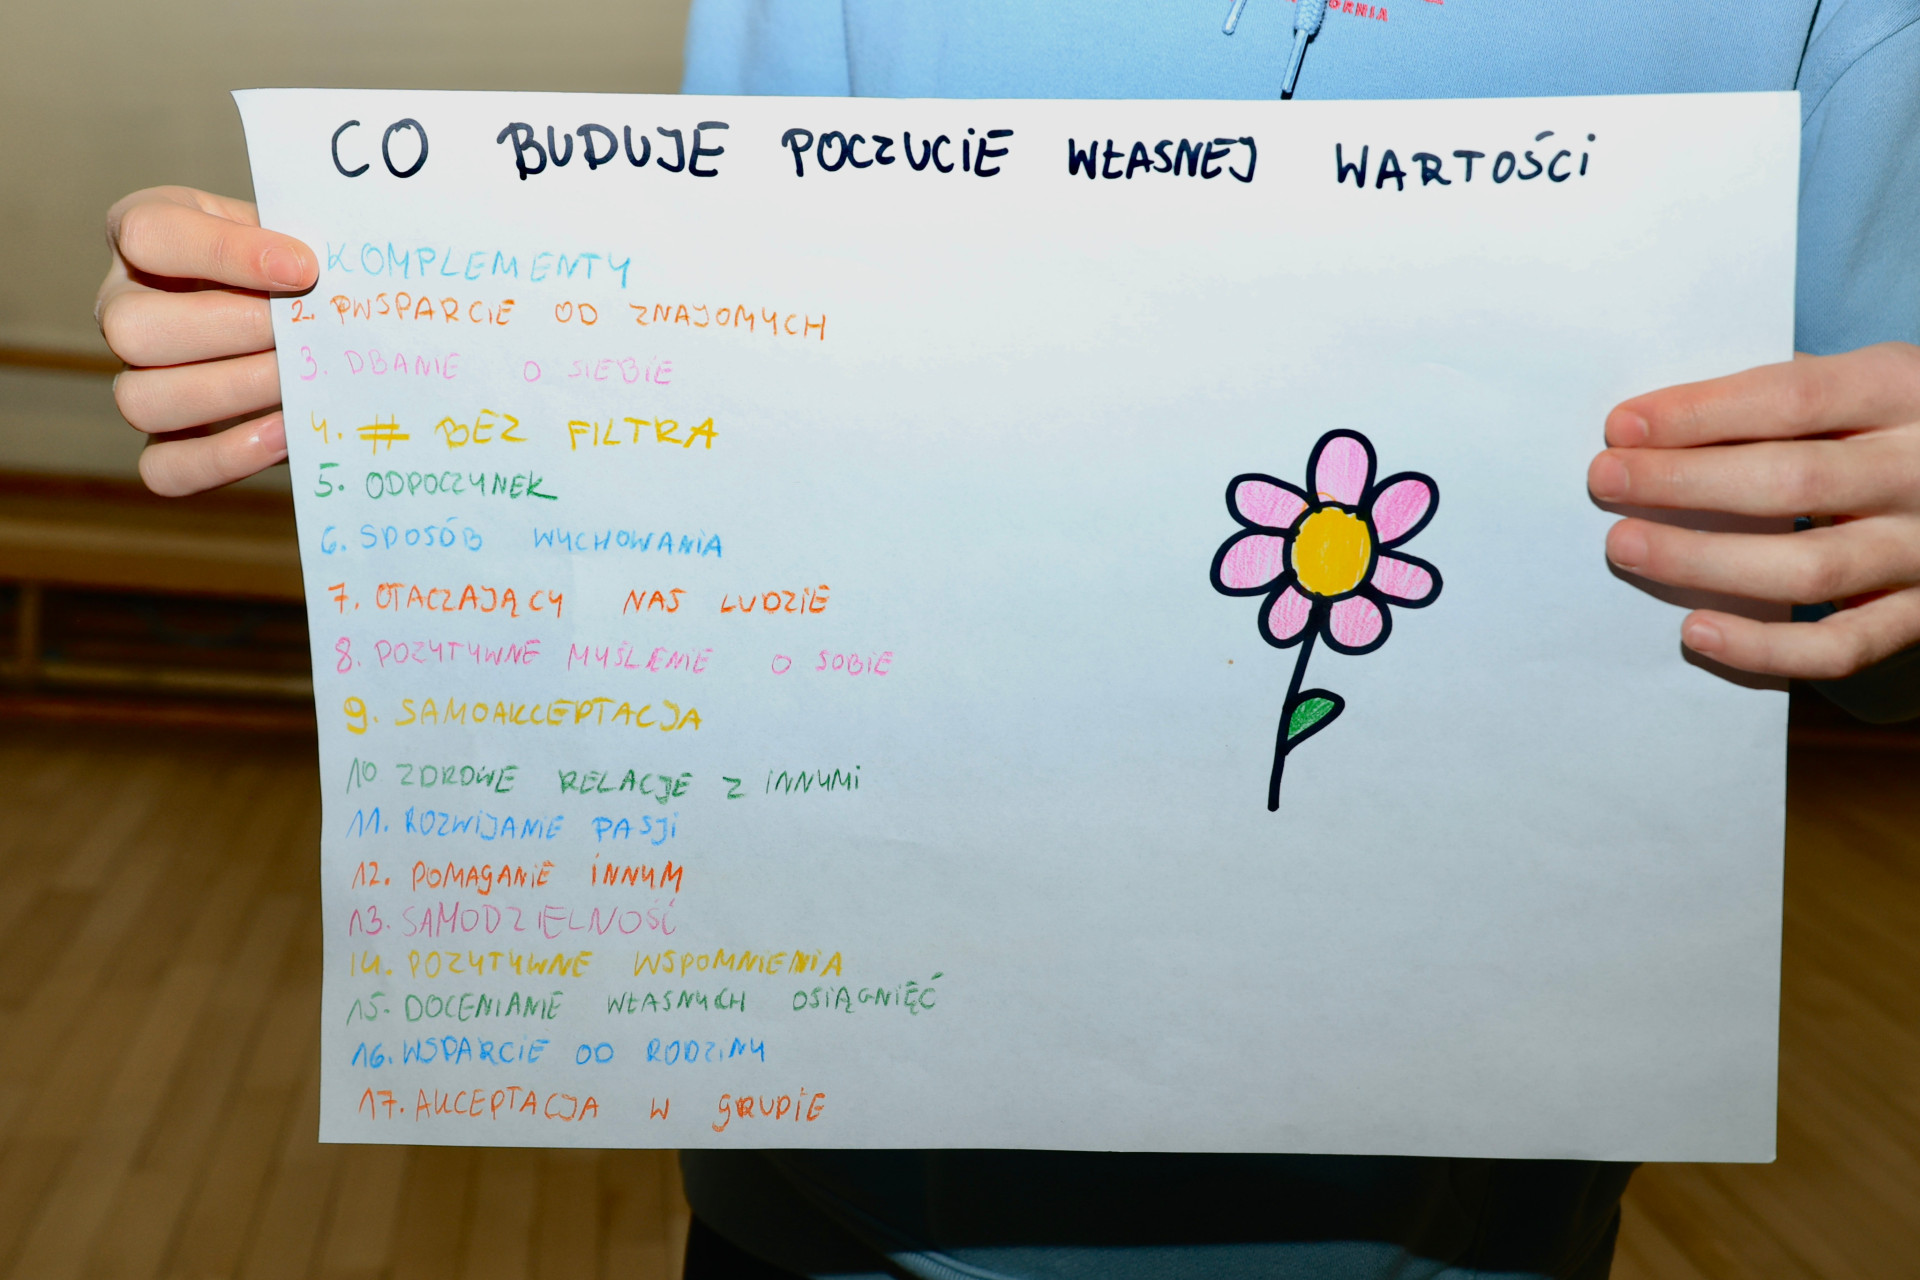 ORNIA
CO BUDUJE POCZUCIE WŁASNEJ WARTOŚCI
KOMPLEMENTY
2. PWSPARCIE OD ZNAJOMYCH
3. DBANIE O SIEBIE
4. # BEZ FILTRA
5. ODPOCZYNEK
6. SPOSÓB WYCHOWANIA
7. OTACZAJĄCY NAS LUDZIE
8. POZYTYWNE MYŚLENIE O SOBIE
9. SAMOAKCEPTACJA
10 ZDROWE RELACJE Z INNYMI
11. ROZWIJANIE PASJI
12. POMAGANIE INNYM
13. SAMODZIELNOŚĆ
14. POZYTYWNE WSPOMNIENIA
15. DOCENIANIE WŁASNYCH OSIĄGNIĘĆ
16. WSPARCIE OD RODZINY
17. AKCEPTACJA W GRUPIE